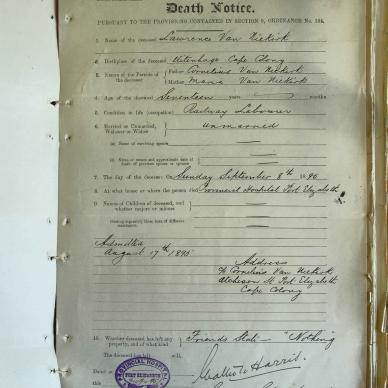 Death Notice.
PURSUANT TO THE PROVISIONS CONTAINED IN SECTION 9, ORDINANCE No. 104.
1. Name of the deceased Lawrence Van Niekirk
2. Birthplace of the deceased Uitenhage Cape Colony
3. Names of the Parents of the deceased Father Cornelius Van Niekirk
Mother Maria Van Niekirk
4. Age of the deceased Seventeen years months
5. Condition in life (occupation) Railway Labourer
6. Married or Unmarried, Widower or Widow unmarried
(a) Name of surviving spouse
(b) Name or names and approximate date of death of previous spouse or spouses
7. The day of the decease Sunday September 8th 1895
8. At what house or where the person died Provincial Hospital Port Elizabeth
9. Names of Children of deceased, and whether majors or minors
(Stating separately those born of different marriages)
Admitted
August 17th 1895
Address
% Cornelius Van Niekirk
St Port Elizabeth
Cape Colony
10. Whether deceased has left any property, and of what kind Friends State - "Nothing"
The deceased has left will.
Harris.
Dated at
PROVINCIAL HOSPITAL
PORT ELIZABETH
this